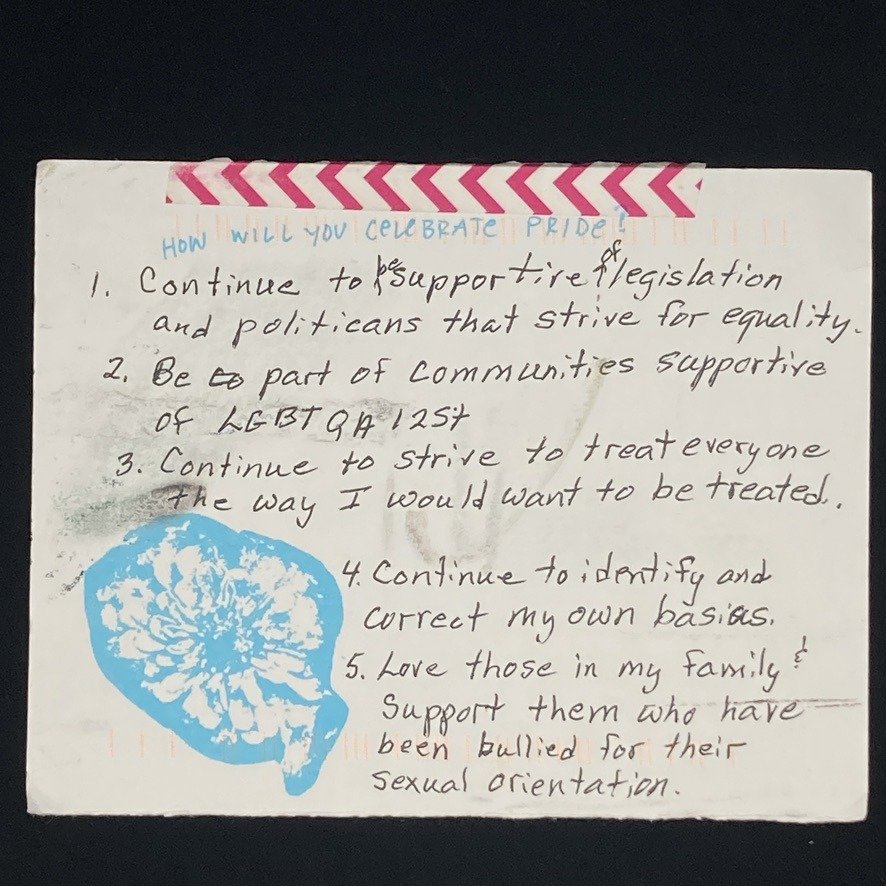 HOW WILL YOU CELEBRATE PRIDE?
1. Continue to be supportive of legislation
and politicans that strive for equality.
2. Be to part of communities supportive
of LGBTQA12S+
3. Continue to strive to treat everyone
the way I would want to be treated.
4. Continue to identify and
correct my own basias.
5. Love those in my family &
Support them who have
been bullied for their
sexual orientation.